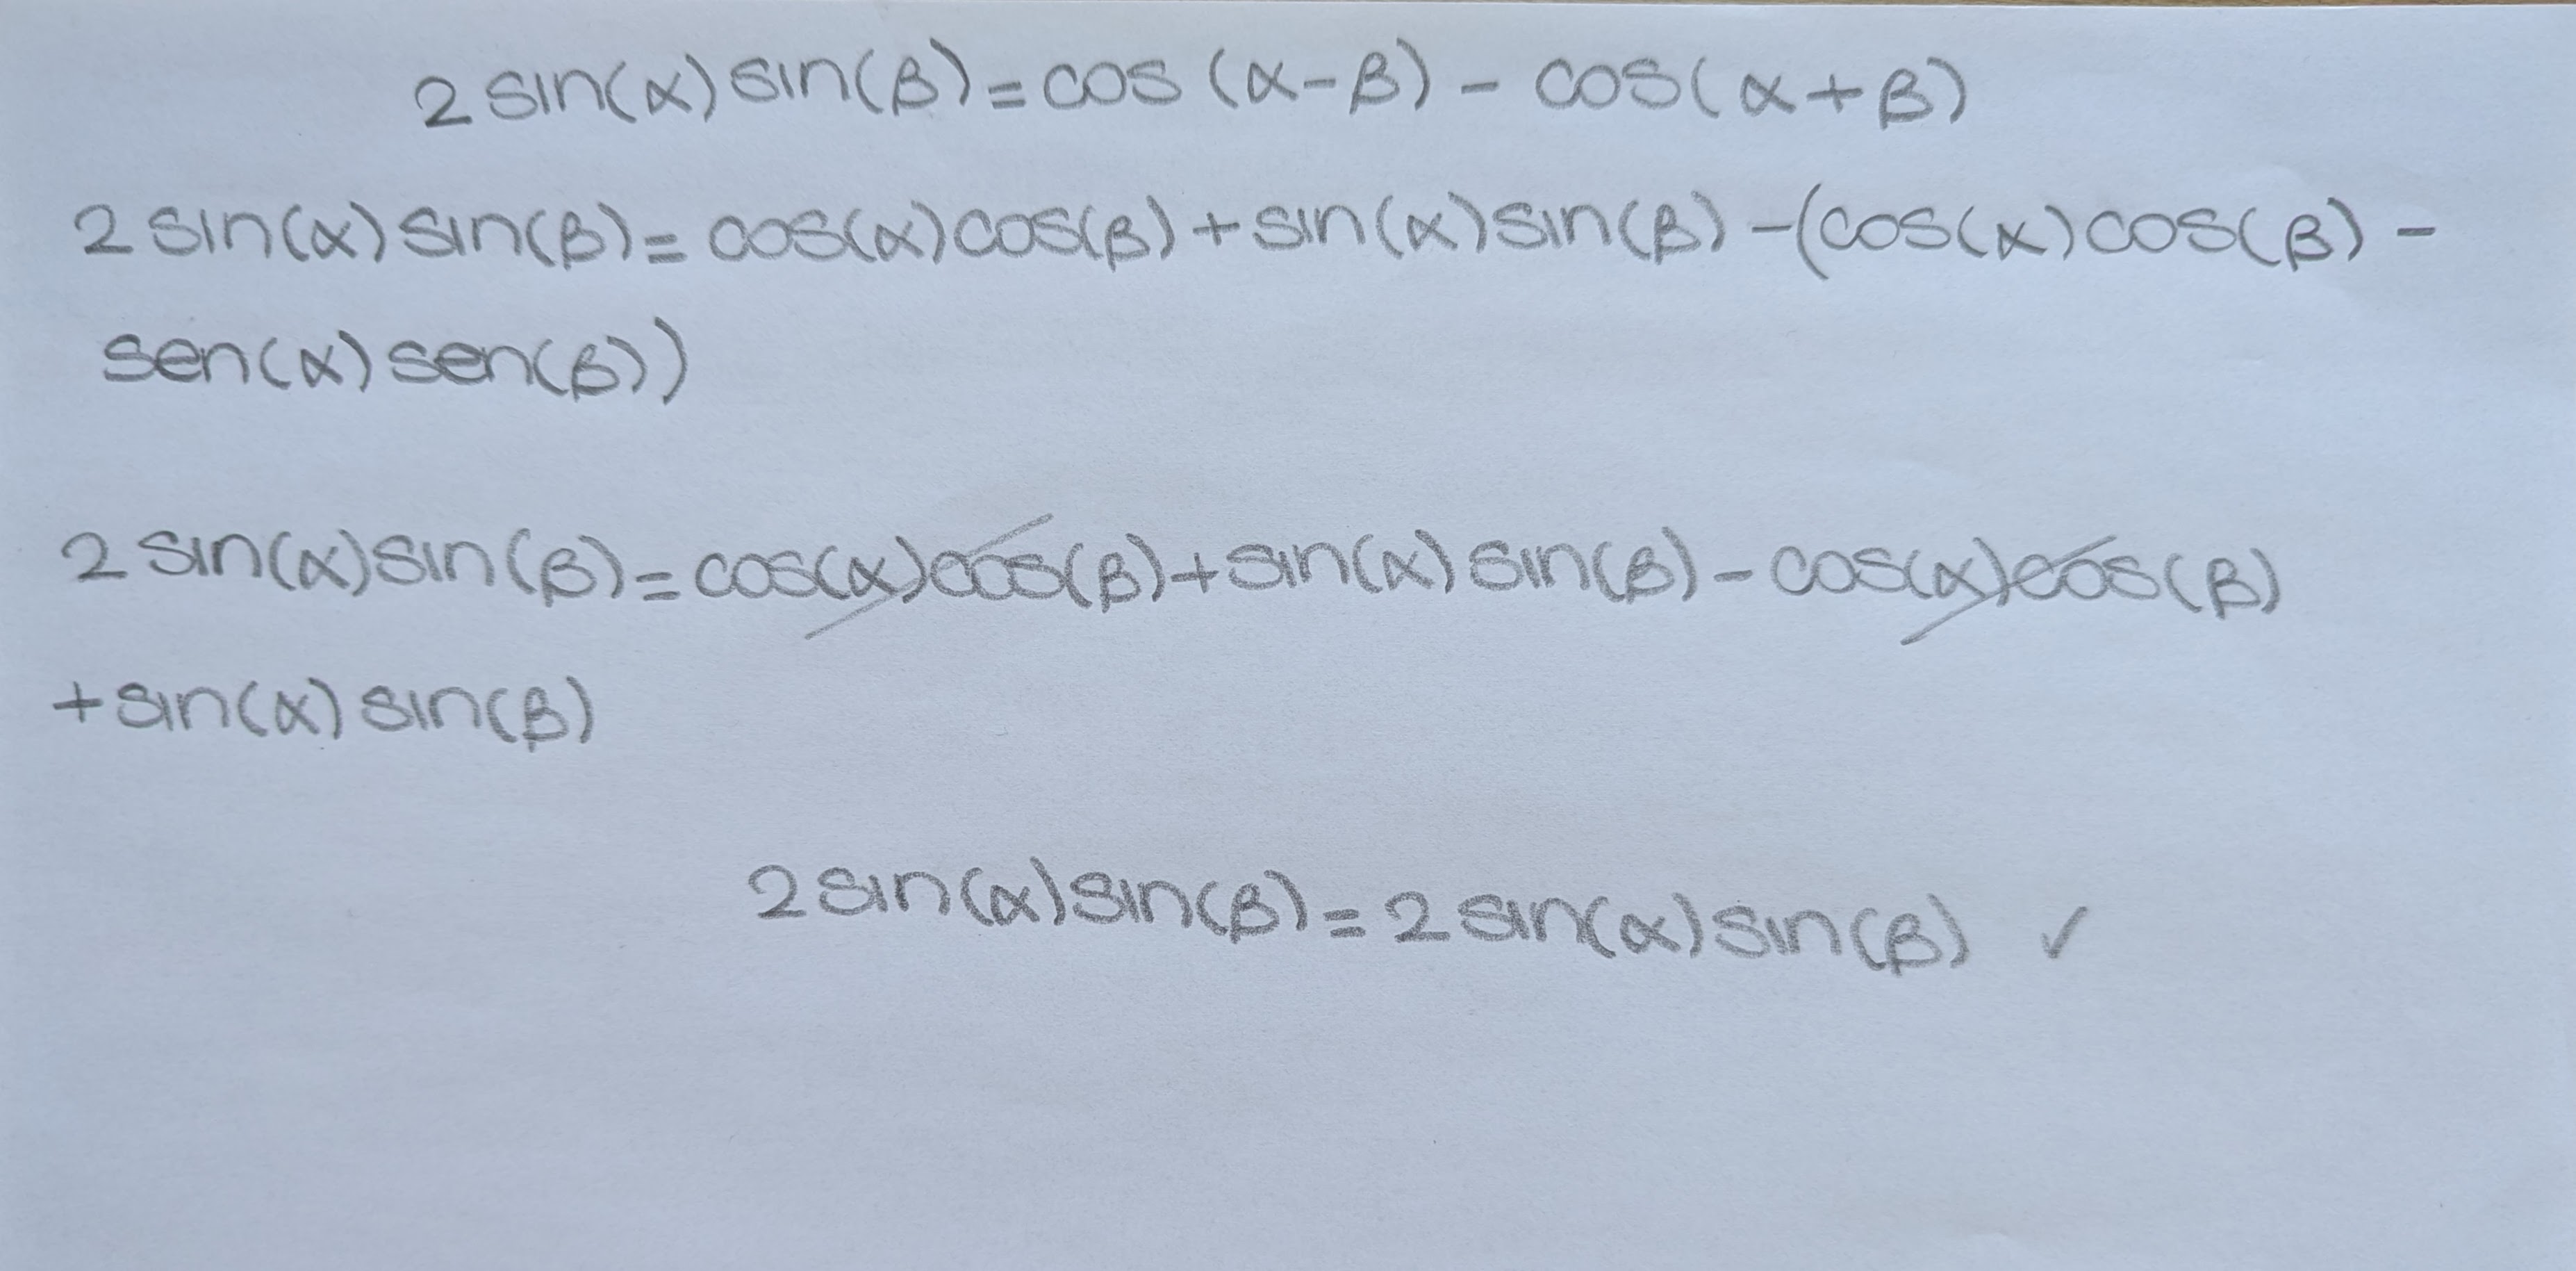 2 sin(α) sin(β) = cos (α-β) - cos(α+β)
2 sin(α) sin(β) = cos(α) cos(β) + sin(α) sin(β) -(cos(α) cos(β) -
sen(α) sen(β))
2 sin(α) sin(β) = cos(α) cos(β) + sin(α) sin(β) - cos(α) cos(β)
+ sin(α) sin(β)
2 sin(α) sin(β) = 2 sin(α) sin(β) ✓